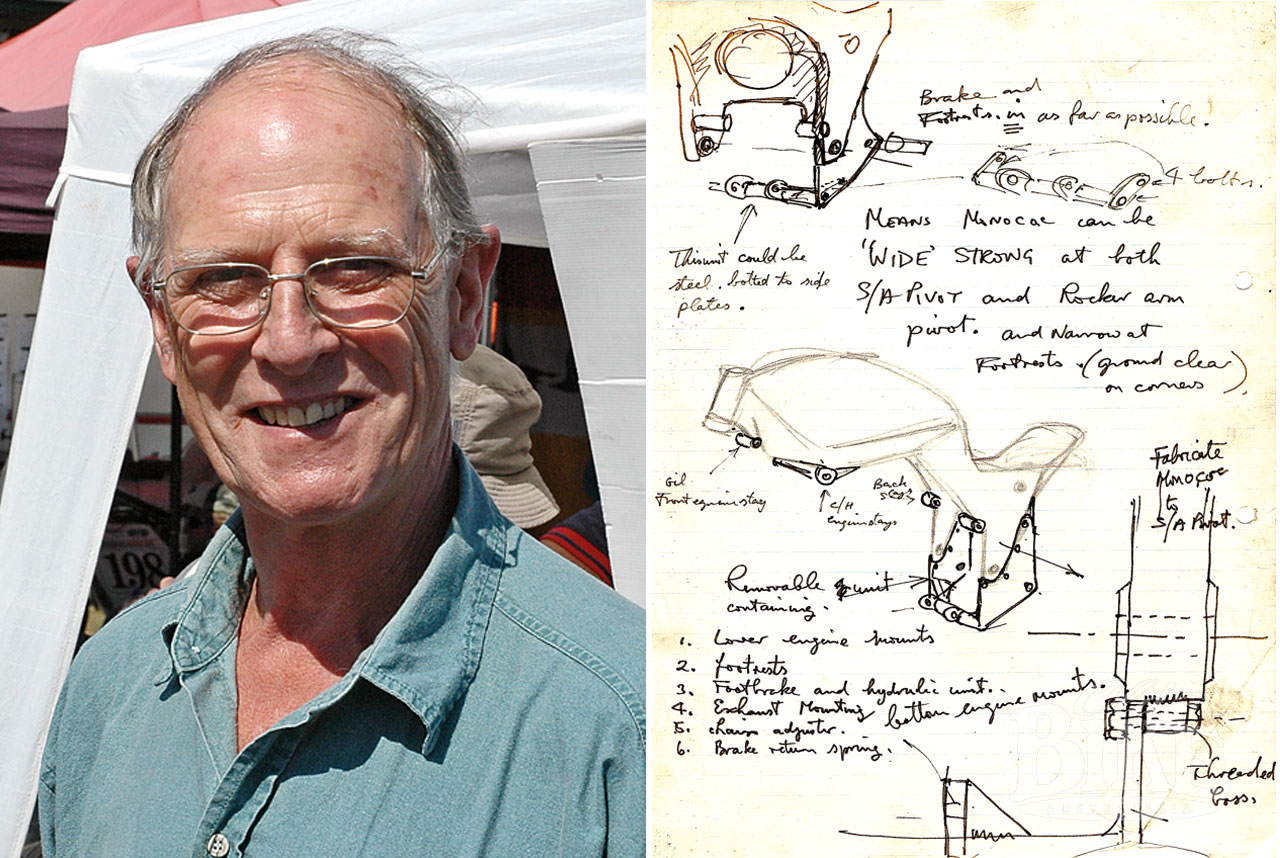 198
Brake and
Footrests. in as far as possible.
4 bolts.
MEANS MONOCOC can be
"WIDE" STRONG at both
S/A PIVOT and Rocker arm
pivot. and Narrow at
Footrests. (ground clear
on corners)
This unit could be
steel. bolted to side
plates.
Front engine stay
C/H
engine stays
Back
Fabricate
MONOCOC
to
S/A Pivot.
Removable unit
containing.
1. Lower engine mounts
2. footrests
3. Footbrake and hydraulic unit.
4. Exhaust Mounting bottom engine mounts.
5. chain adjuster.
6. Brake return spring.
Threaded
boss.
BiN
AUSTRALIA